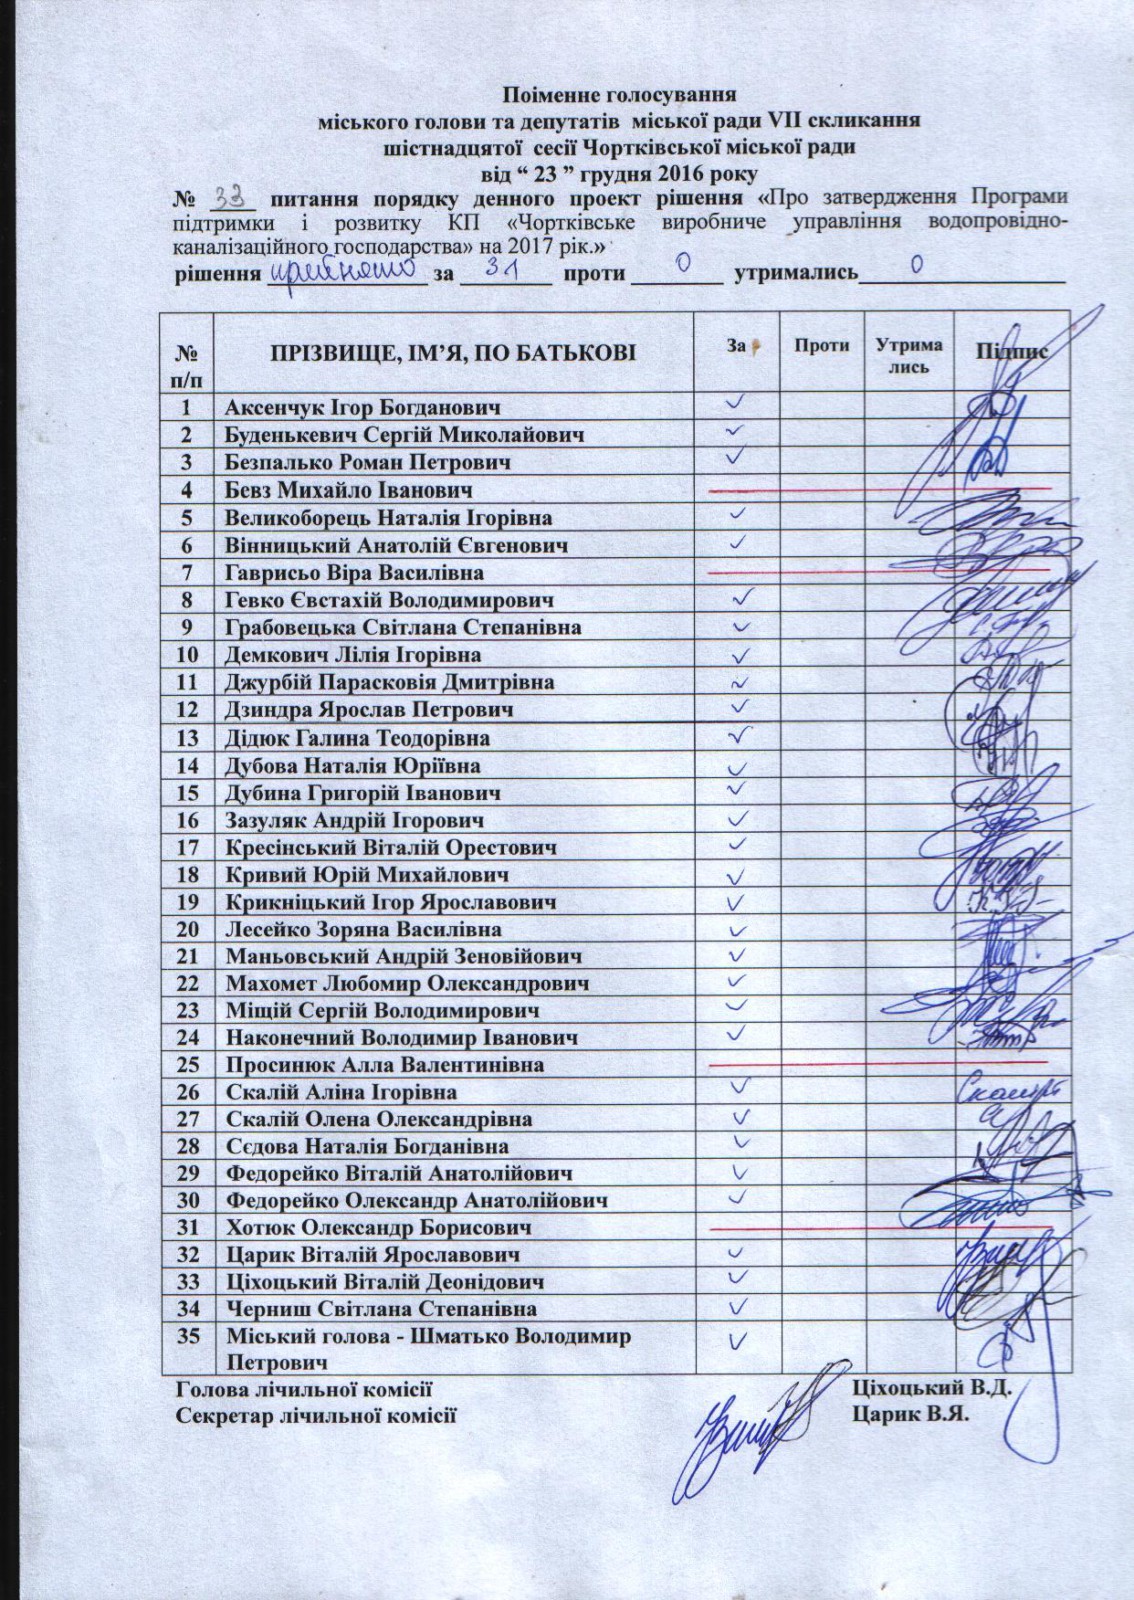 Поіменне голосування
міського голови та депутатів міської ради VII скликання
шістнадцятої сесії Чортківської міської ради
від “ 23 ” грудня 2016 року
№ 33 питання порядку денного проект рішення «Про затвердження Програми
підтримки і розвитку КП «Чортківське виробниче управління водопровідно-
каналізаційного господарства» на 2017 рік.»
рішення прийнято за 31 проти 0 утримались 0
№ п/п ПРІЗВИЩЕ, ІМ’Я, ПО БАТЬКОВІ За Проти Утрима лись Підпис
1 Аксенчук Ігор Богданович
2 Буденькевич Сергій Миколайович
3 Безпалько Роман Петрович
4 Бевз Михайло Іванович
5 Великоборець Наталія Ігорівна
6 Вінницький Анатолій Євгенович
7 Гаврисьо Віра Василівна
8 Гевко Євстахій Володимирович
9 Грабовецька Світлана Степанівна
10 Демкович Лілія Ігорівна
11 Джурбій Парасковія Дмитрівна
12 Дзиндра Ярослав Петрович
13 Дідюк Галина Теодорівна
14 Дубова Наталія Юріївна
15 Дубина Григорій Іванович
16 Зазуляк Андрій Ігорович
17 Кресінський Віталій Орестович
18 Кривий Юрій Михайлович
19 Крикніцький Ігор Ярославович
20 Лесейко Зоряна Василівна
21 Маньовський Андрій Зеновійович
22 Махомет Любомир Олександрович
23 Міщій Сергій Володимирович
24 Наконечний Володимир Іванович
25 Просинюк Алла Валентинівна
26 Скалій Аліна Ігорівна
27 Скалій Олена Олександрівна
28 Сєдова Наталія Богданівна
29 Федорейко Віталій Анатолійович
30 Федорейко Олександр Анатолійович
31 Хотюк Олександр Борисович
32 Царик Віталій Ярославович
33 Ціхоцький Віталій Деонідович
34 Черниш Світлана Степанівна
35 Міський голова - Шматько Володимир
Петрович
Голова лічильної комісії Ціхоцький В.Д.
Секретар лічильної комісії Царик В.Я.